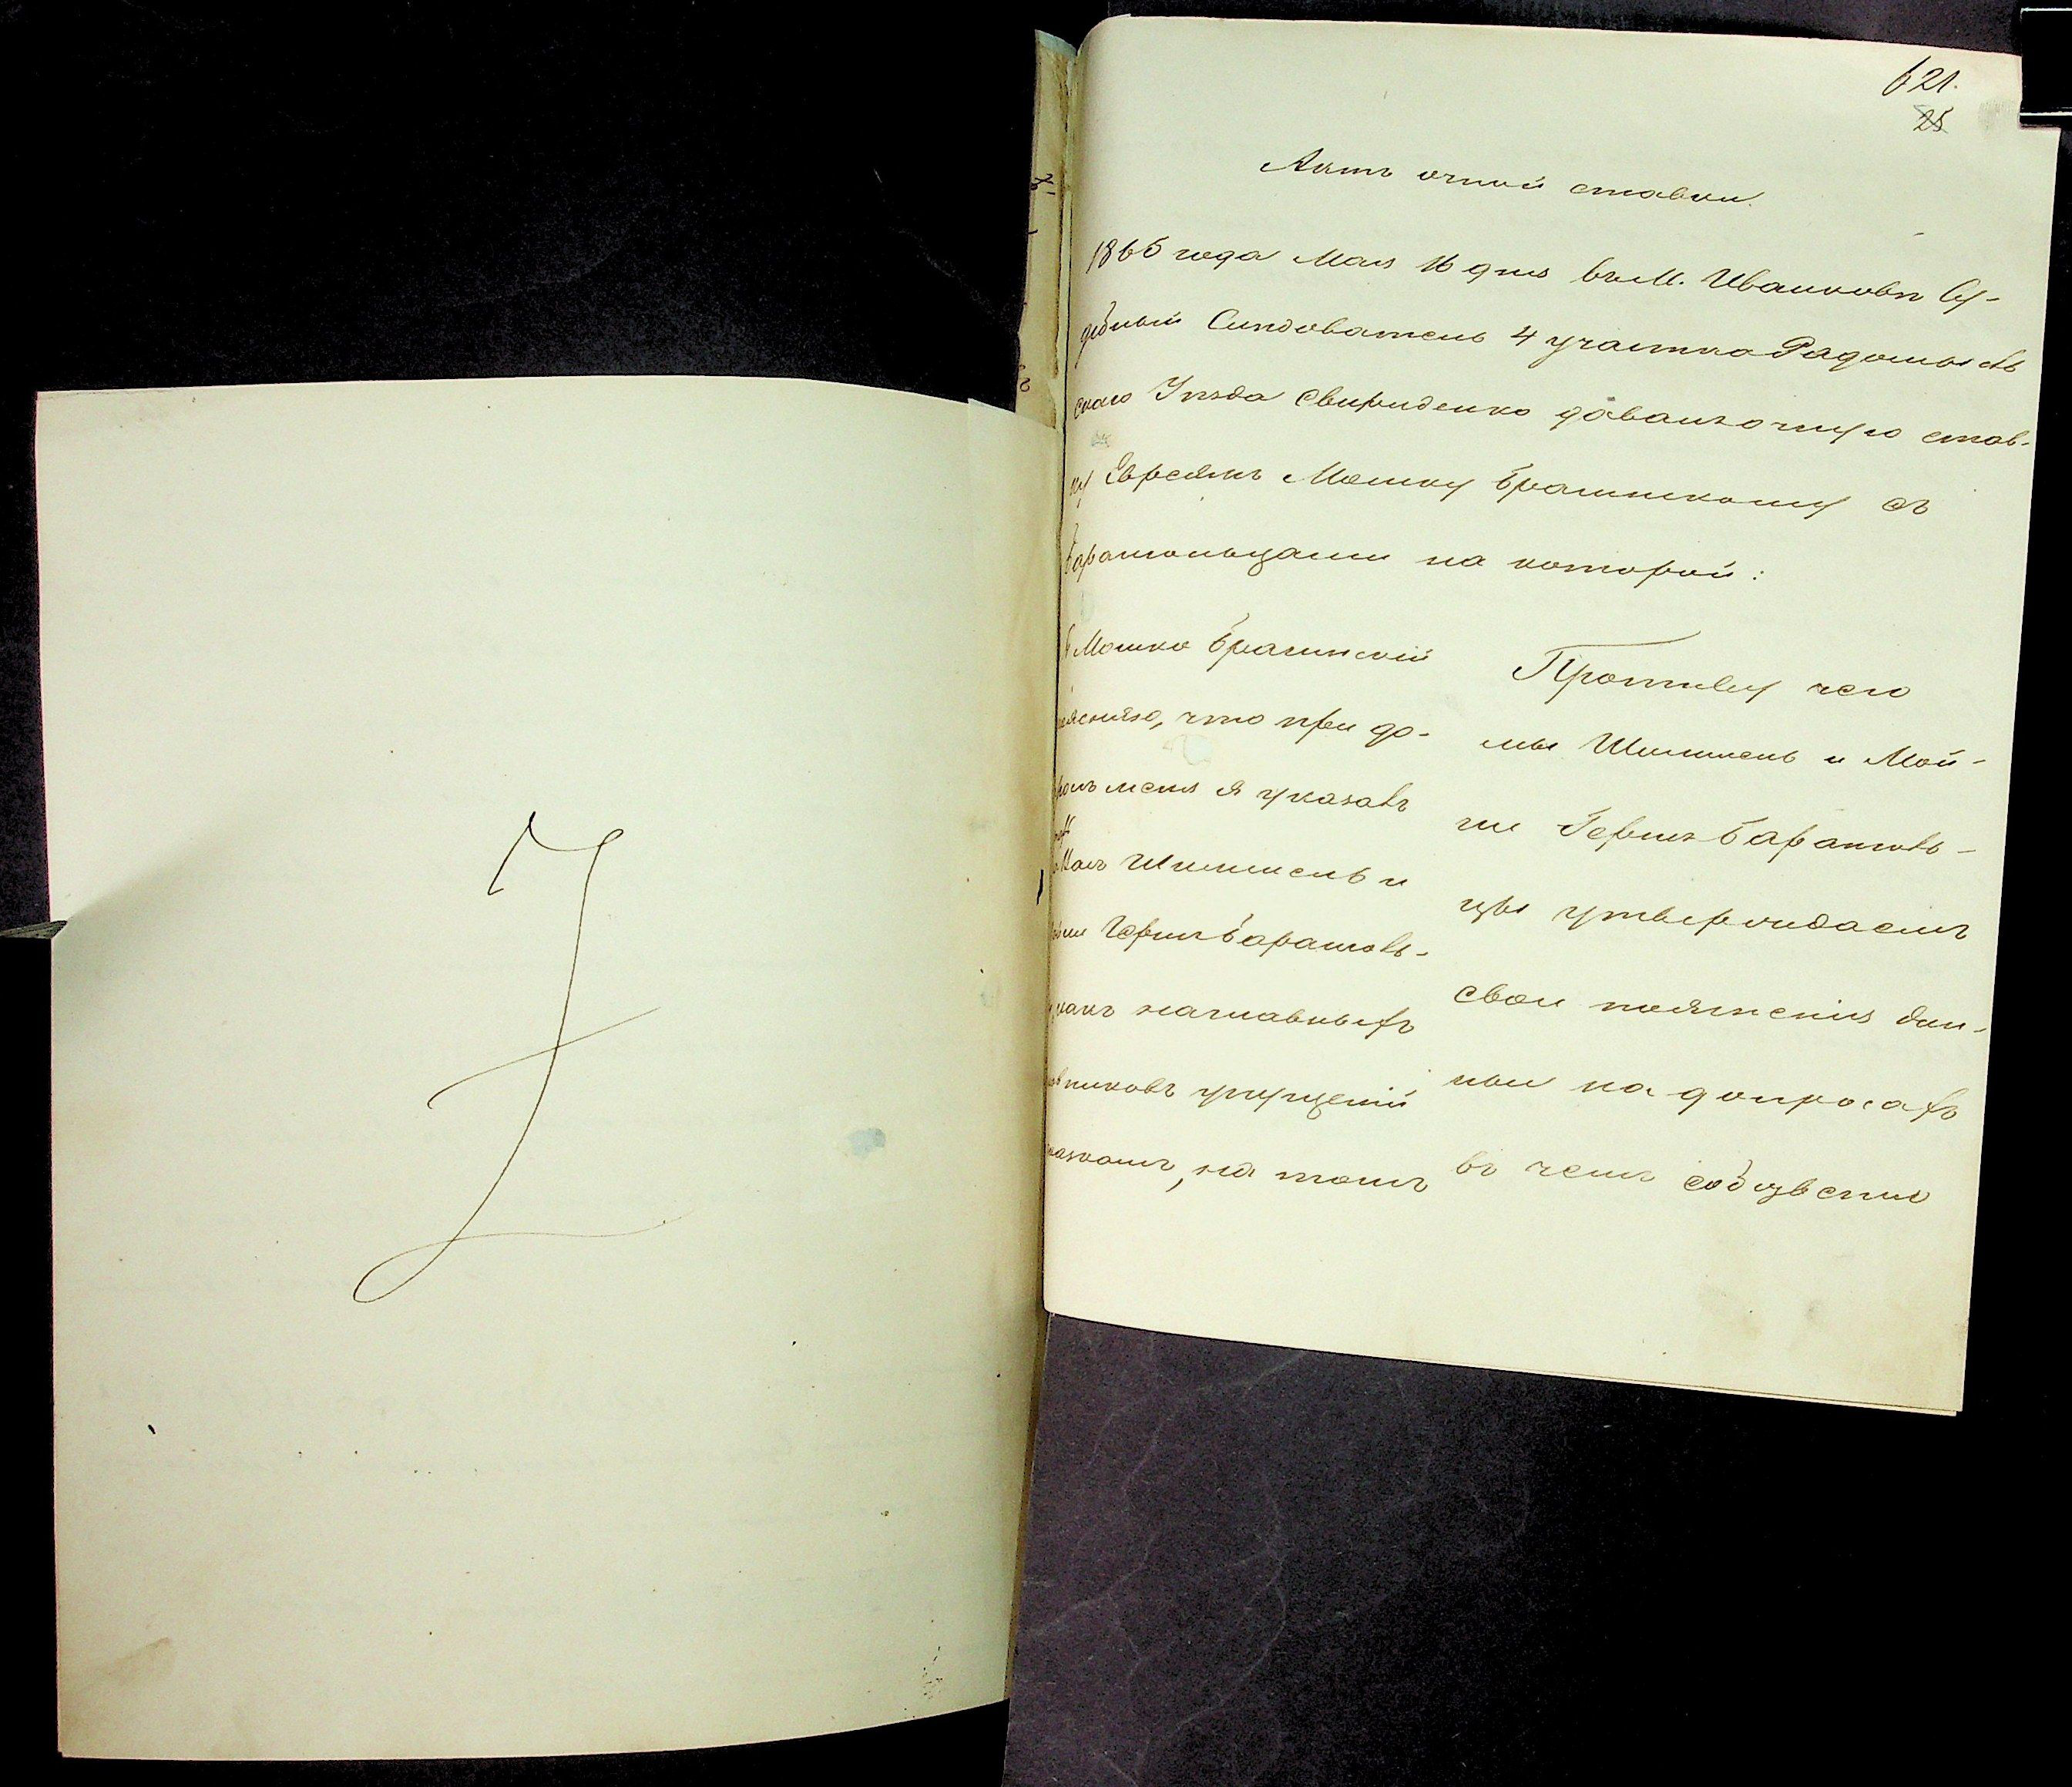 621.
25
Актъ очной ставки.
1865 года Мая 16 дня въ М. Иванковѣ Су-
дебный Слѣдователь 4 участка Радомысль
скаго Уѣзда Свириденко давалъ очную став-
ку Евреямъ Мошку Брагинскому съ
Барановцами на которой:
Мошко Брагинскій
что при до-
меня я указавъ
Шимшель и
Герш Барановъ-
какъ на главныхъ
на томъ
Противу чего
мы Шимшель и Мой-
ше Герш Барановъ-
цы утверждаемъ
свои поясненія дан-
ныи на допросахъ
въ чемъ собственно